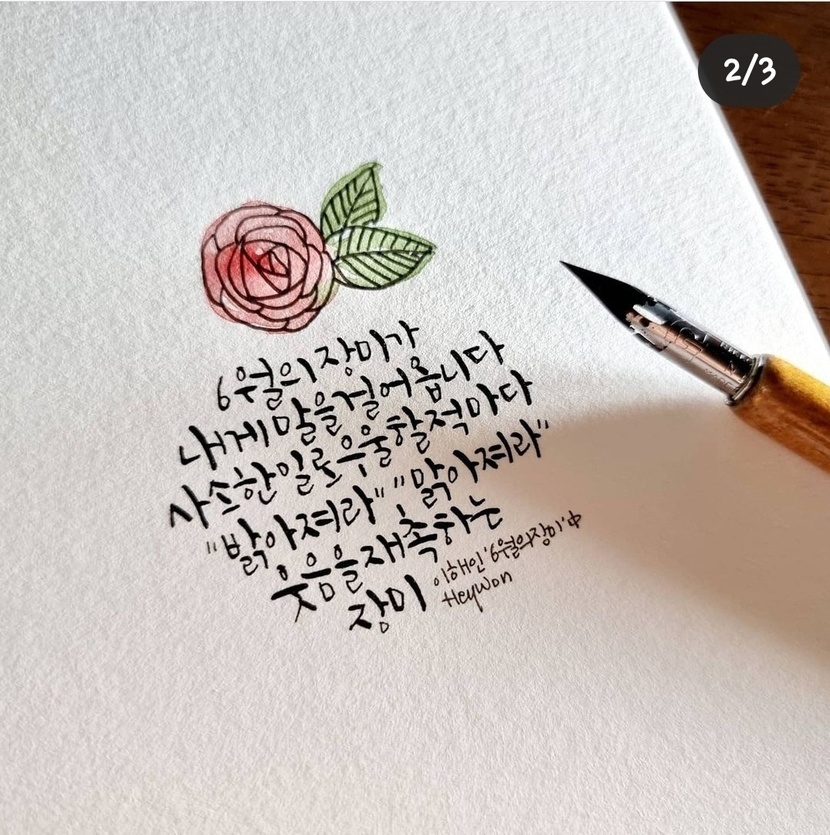 2/3
6월의 장미가
내게 말을 걸어옵니다
사소한 일로 우울할 적마다
"밝아져라" "맑아져라"
웃음을 재촉하는
장미
이해인 '6월의 장미' 中
HeyWon